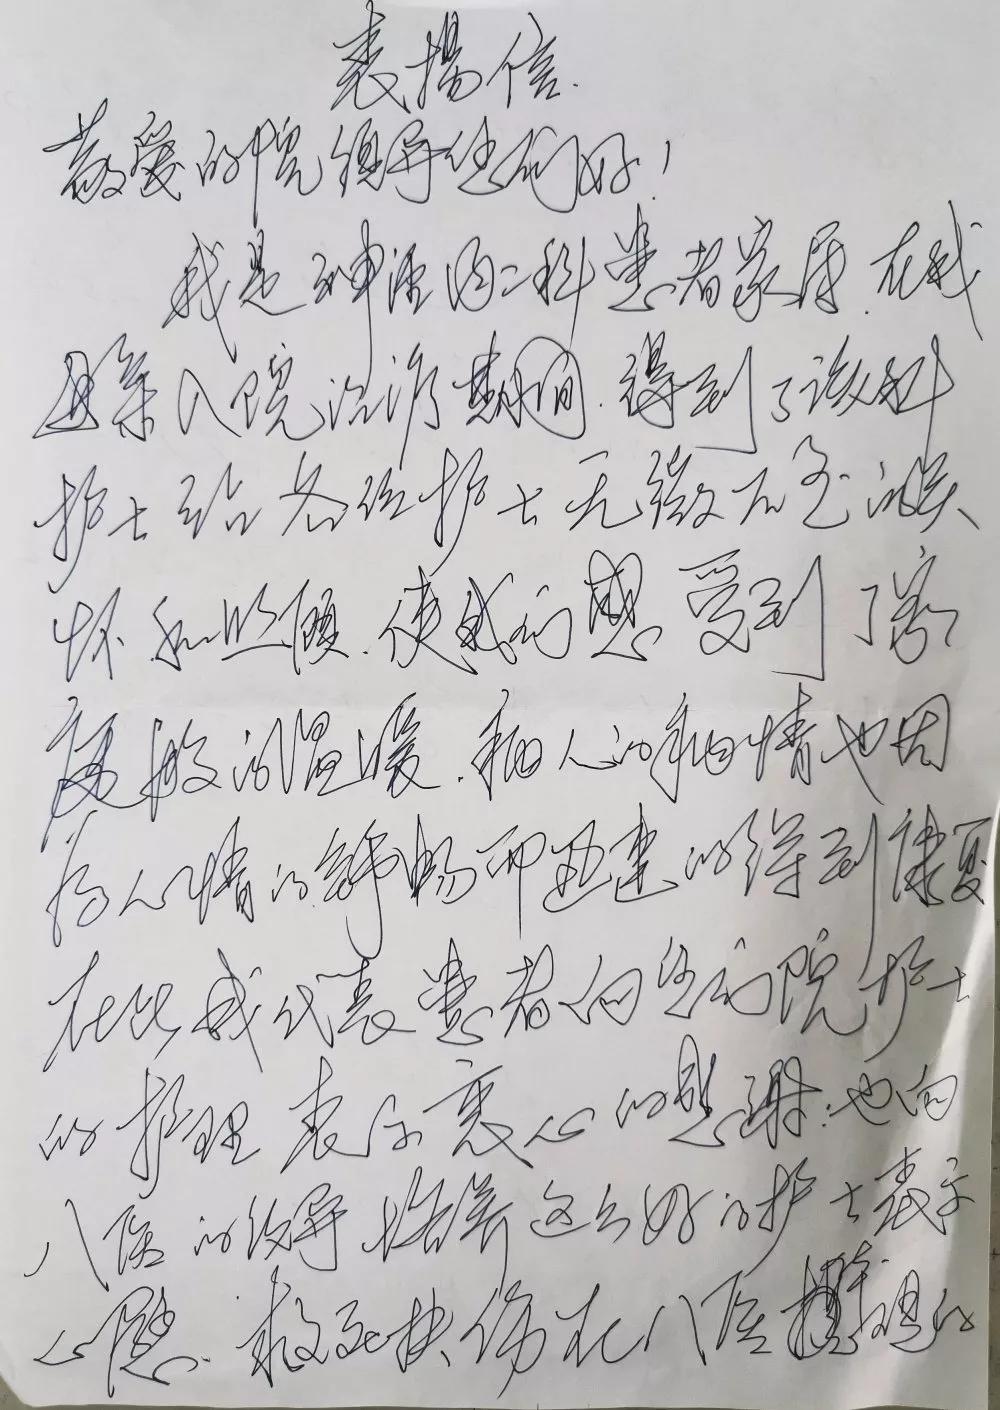 表揚信.
敬爱的院领导您们好!
我是神经内二科患者家属.在我
母亲入院治疗期间.得到了该科
护士站各位护士无微不至的关
怀和照顾.使我们感受到了家
庭般的温暖.病人的病情也因
为心情的舒畅而迅速的得到康复
在此我代表患者向您们院护士
的护理表示衷心的感谢.也向
八医的领导培养这么好的护士表示
心慰.救死扶伤在八医体现的